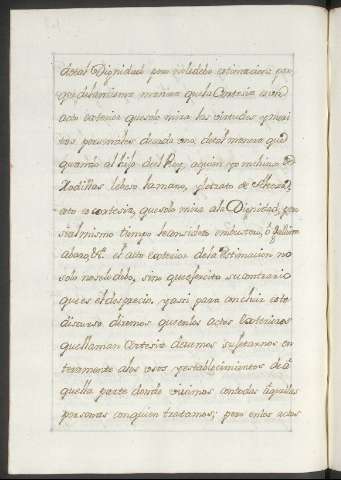 de tal Dignidad pero no le debo estimacion: por
que de la misma manera que la Cortesia es un
acto exterior que solo mira las virtudes y meri
tos personales de cada uno, de tal manera que
quando al hijo del Rey, a quien yo me hinco de
Rodillas le beso la mano, y le trato de Alteza,
esto es cortesia, que solo mira ala Dignidad, pero
si al mismo tiempo le considero embustero, ô
abaro, &c. el acto exterior de la Estimacion no
solo no se lo debo, sino que exercito su contrario
que es el desprecio, y asi para concluir este
discurso diremos que en los actos Exteriores
que llaman Cortesia devemos sujetarnos en
teramente alos usos y establecimientos de â
quella parte donde vivimos con todas âquellas
personas con quien tratamos; pero en los actos